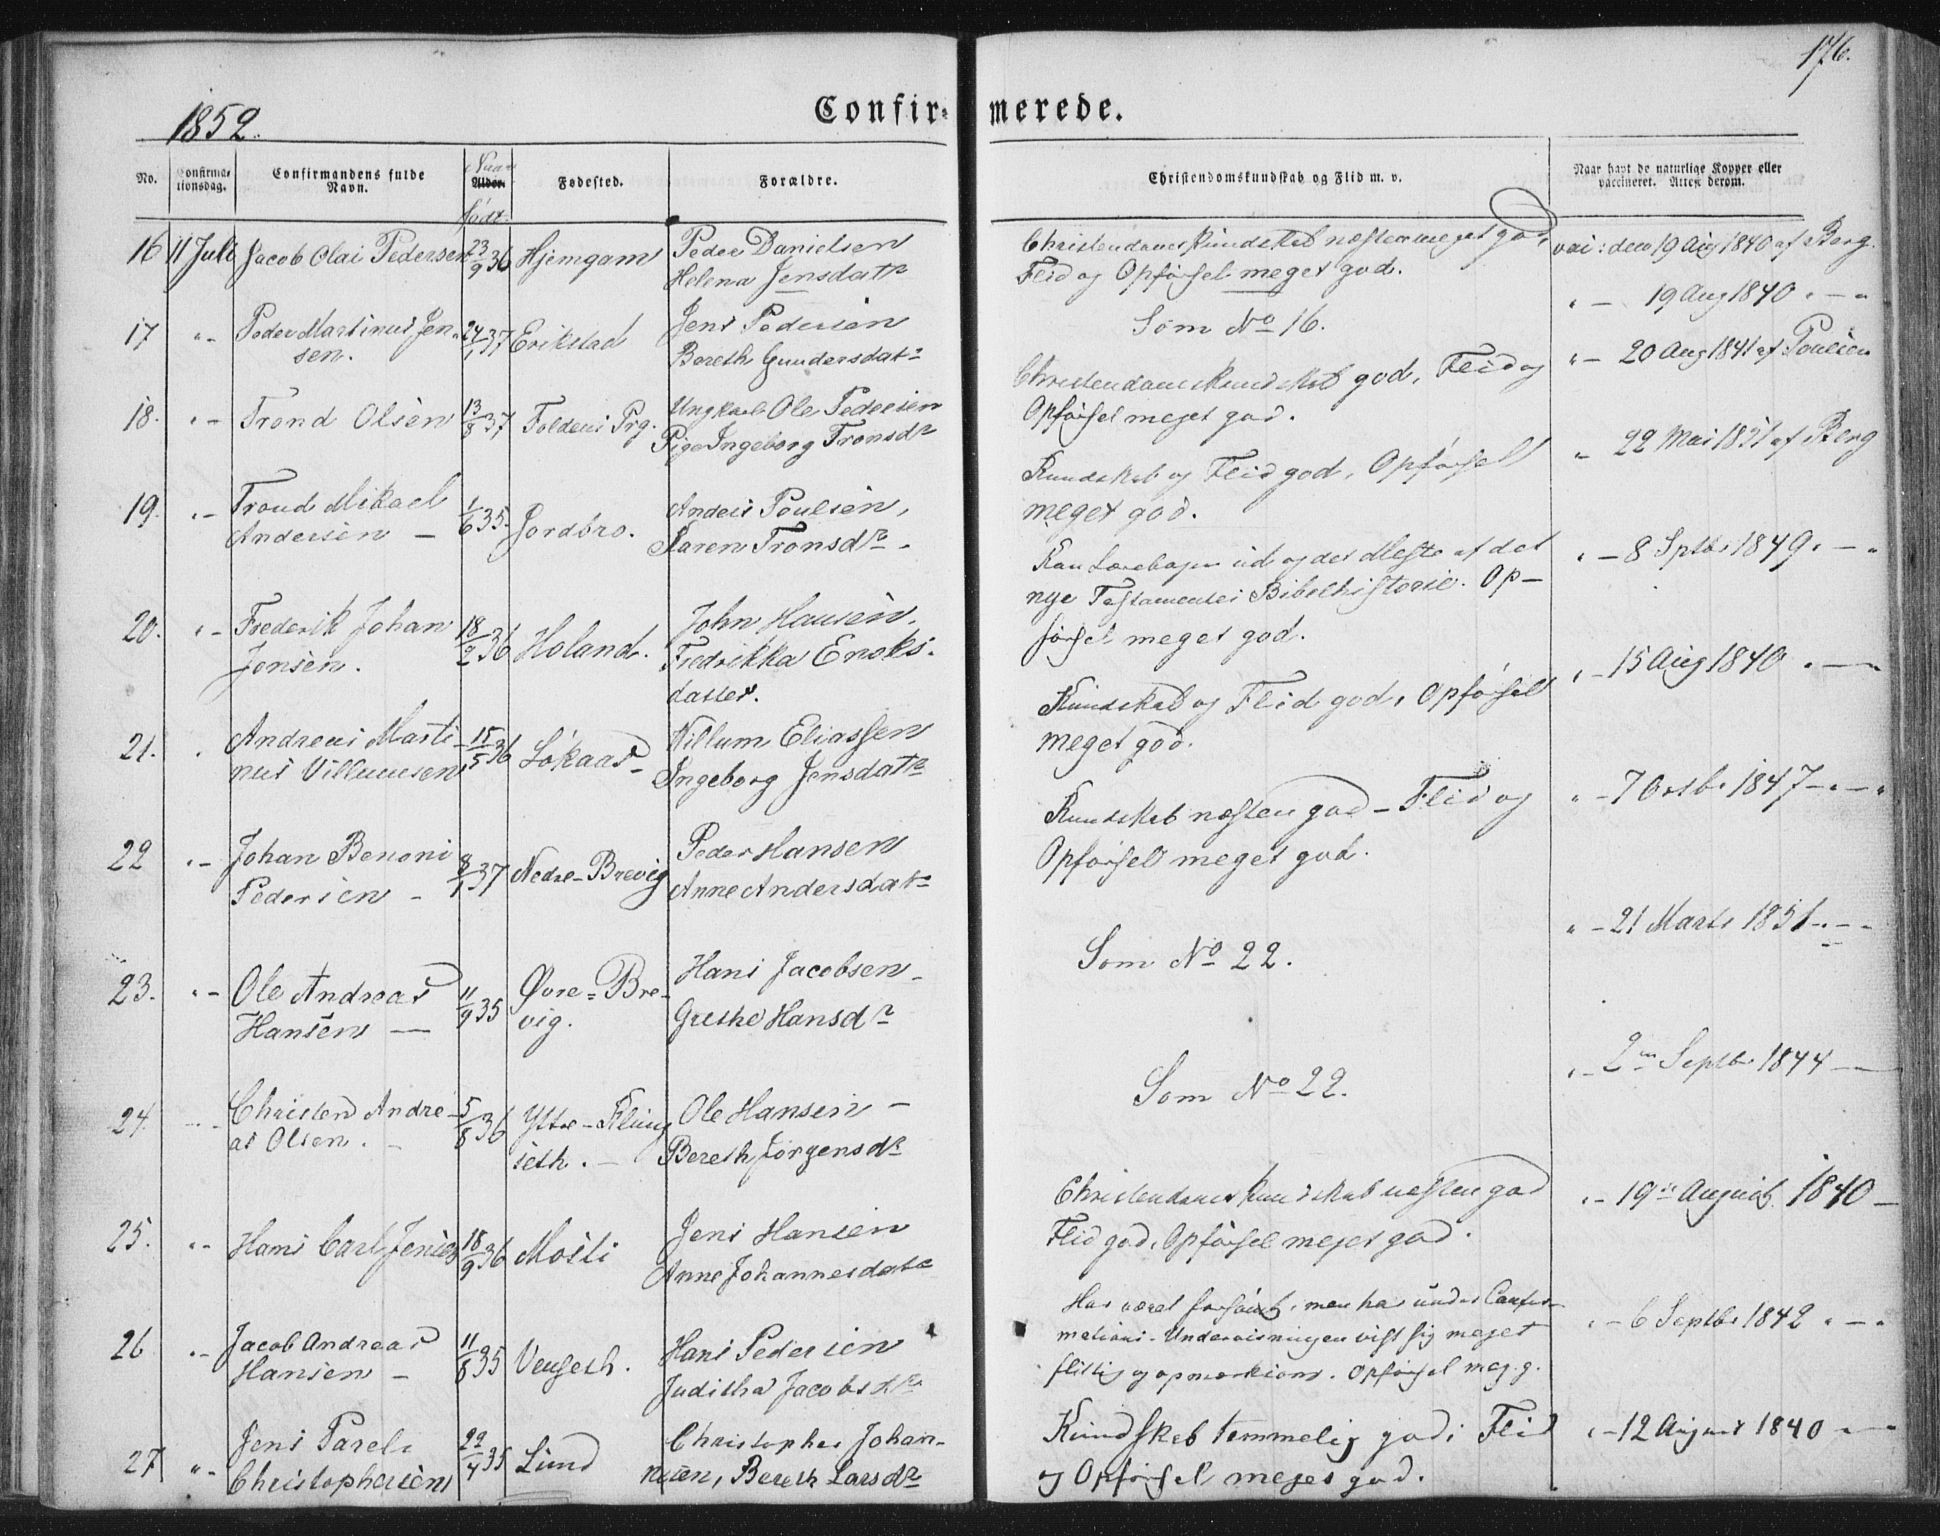 176.
1852.
Confirmerede.
No.
Confirmationsdag.
Confirmandens fulde Navn.
Naar
Alder.
født.
Fødested.
Forældre.
Christendomskundskab og Flid m. v.
Naar havt de naturlige Kopper eller
vaccineret. Attest derom.
16 11 Juli Jacob Olai Pedersen 23/9 36 Hjemgam Peder Danielsen
Helena Jensdatr
Christendomskundskab næsten meget god,
Flid og Opførsel meget god.
vac: den 19 Aug 1840 af Berg.
17 "- Peder Martinus Jen-
sen. 24/1 37 Erikstad Jens Pedersen
Bereth Gundersdatr
Som No 16.
" - 19 Aug 1840 " - "
18. "- Trond Olsen 13/8 37 Foldens Prg. Ungkarl Ole Pedersen
Pige Ingeborg Tronsdr
Christendomskundskab god, Flid og
Opførsel meget god.
" - 20 Aug 1841 af Poulsen
19. "- Trond Mikael
Andersen - 1/6 35. Jordbro. Anders Poulsen,
Karen Tronsdr -
Kundskab og Flid god, Opførsel
meget god.
" 22 Mai 1851 af Berg
20. "- Frederik Johan
Jensen. 18/2 36 Holand. John Hansen,
Fredrikka Enoks-
datter.
Kan Lærebogen ud og det Meste af det
nye Testamentes Bibelhistorie. Op-
førsel meget god.
" - 8 Septbr 1849 " - "
21. " Andreas Marti-
nus Villumsen 15/5 36 Løkaas - Villum Eliassen
Ingeborg Jensdatr
Kundskab og Flid god, Opførsel
meget god.
" - 15 Aug 1840 " -
22 "- Johan Benoni
Pedersen - 8/1 37 Nedre-Brevig Peder Hansen
Anne Andersdatr
Kundskab næsten god - Flid og
Opførsel meget god.
" - 7 Octbr 1847 - " - "
23. "- Ole Andreas
Hansen - 11/9 35 Øvre-Bre-
vig. Hans Jacobsen -
Grethe Hansdr
Som No 22.
" - 21 Marts 1851 - " -
24. "- Christen Andre-
as Olsen. - 5/8 36 Yttre-Fling
seth. - Ole Hansen -
Bereth Jørgensdr
Som No 22.
" - 2den Septbr 1844 -
25. "- Hans Carl Jensen 18/9 36 Mosti Jens Hansen
Anne Johannesdatr
Christendomskundskab næsten god
Flid god, Opførsel meget god.
" - 19de August 1840 -
26 "- Jacob Andreas
Hansen - 11/8 35 Vengeth. Hans Pedersen
Juditha Jacobsdr
Har været forsømt, men har under Confir-
mations-Underviisningen viist sig meget
flittig og opmærksom. Opførsel meg. g.
" - 6 Septbr 1842 " - "
27 "- Jens Pareli
Christophersen 22/4 35 Lund Christopher Johan-
nesen, Bereth Larsdr
Kundskab temmelig god; Flid
og Opførsel meget god.
" - 12 August 1840 - " -